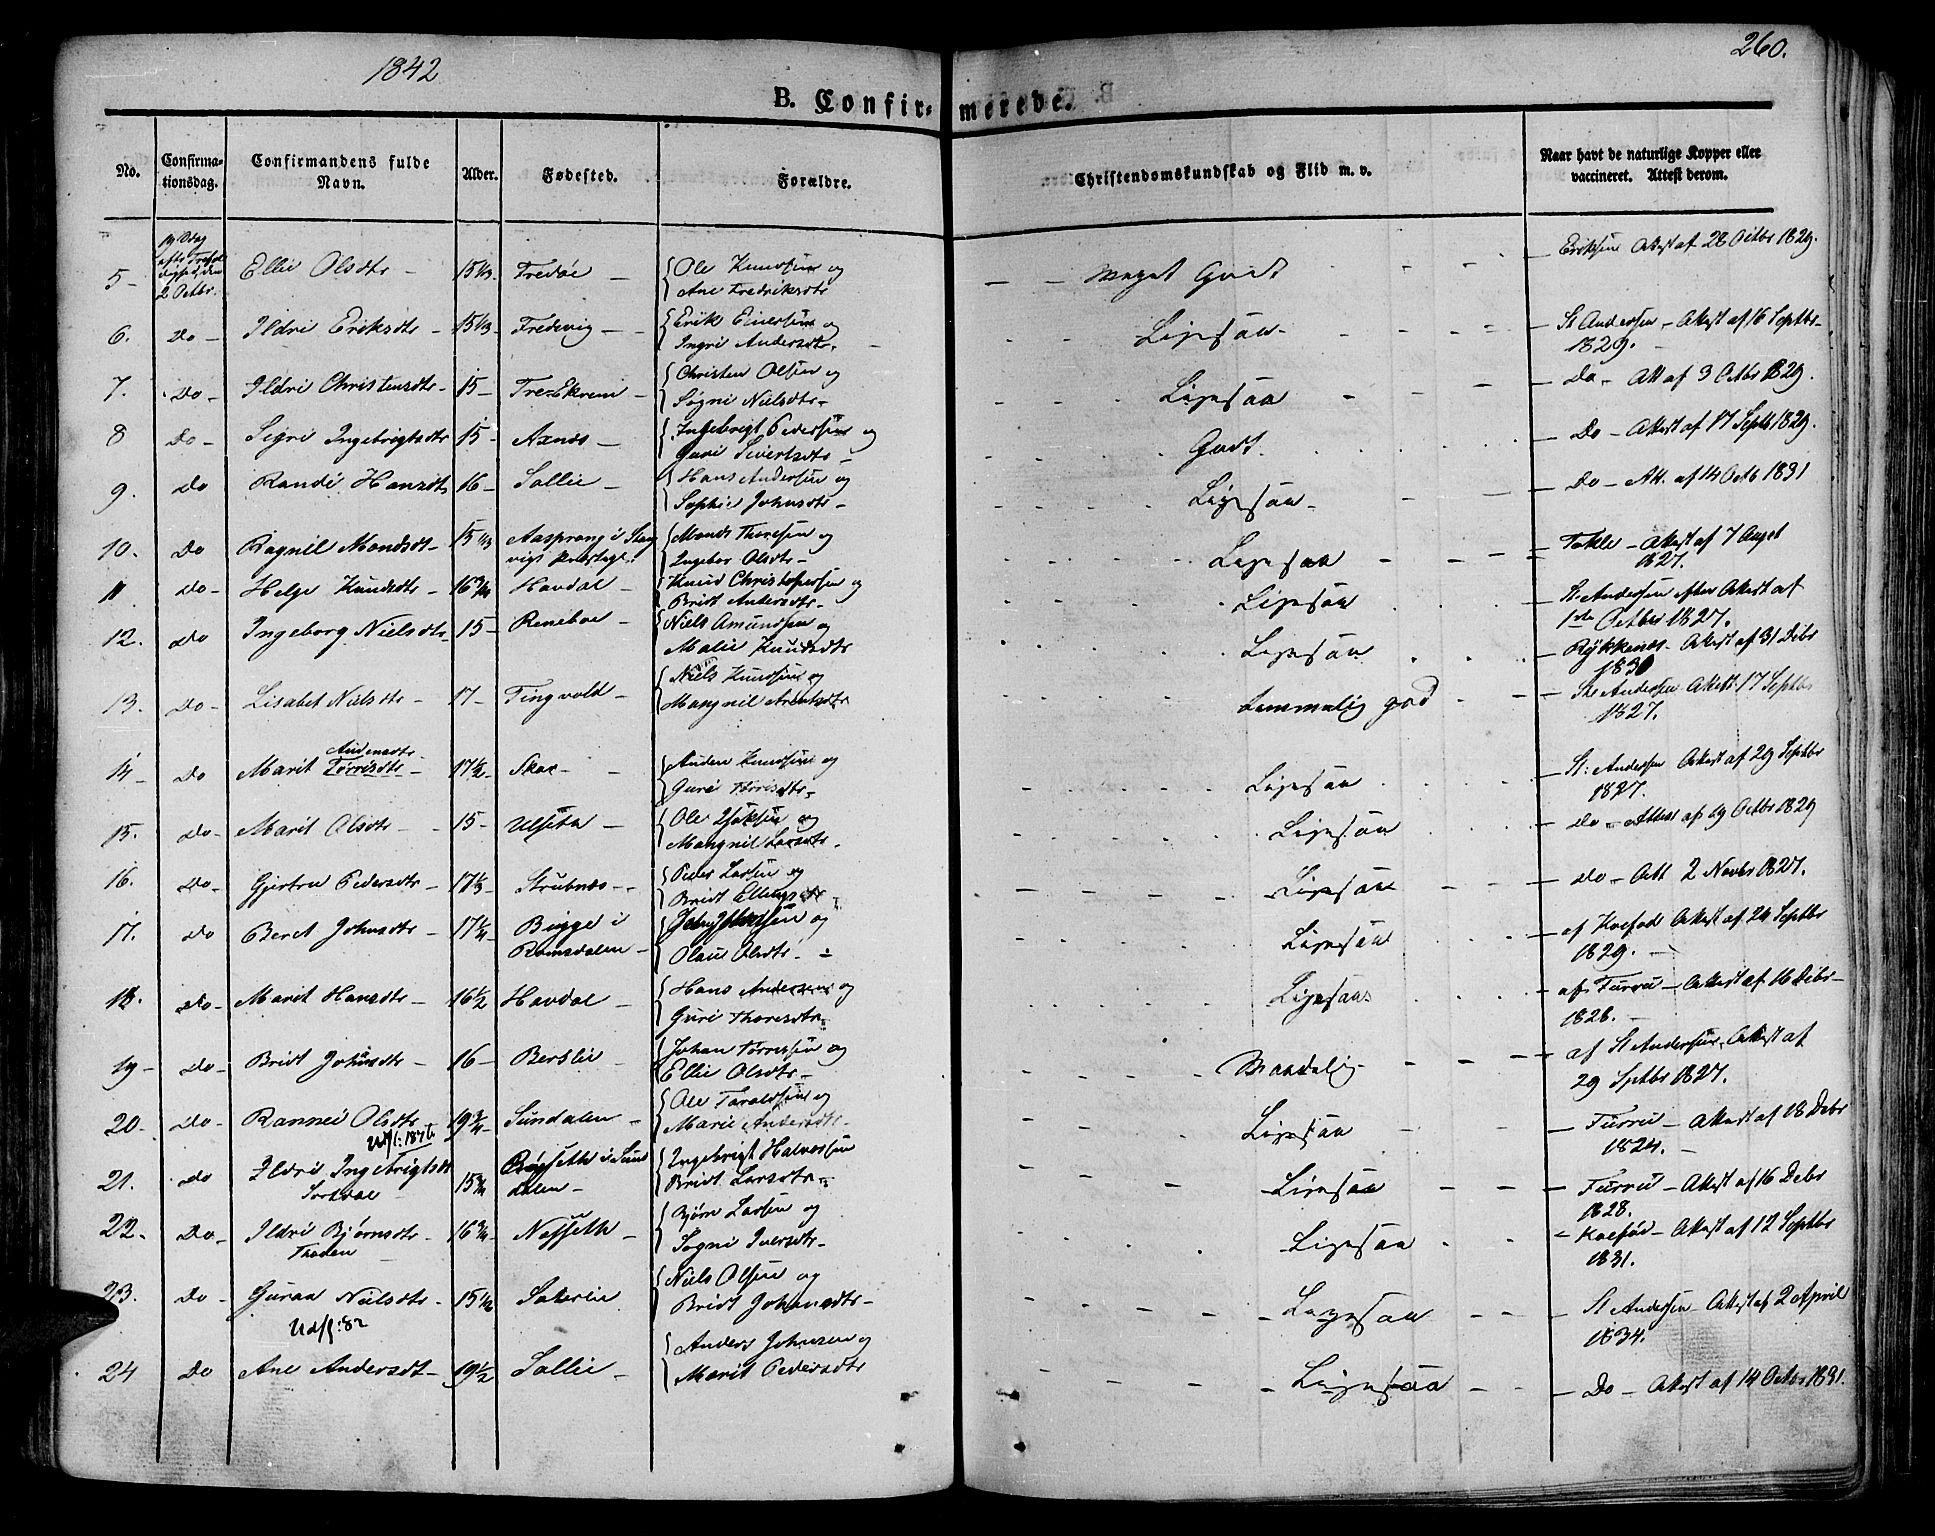 1842
260.
B. Confir- merede.
No.
Confirma-
tionsdag.
Confirmandens fulde
Navn.
Alder.
Fødested.
Forældre.
Christendomskundskab og Flid m. v.
Naar havt de naturlige Kopper eller
vaccineret. Attest derom.
5 - 2 Octbr. Ellie Olsdtr - 15 1/3 - Fredøe - Ole Knudsen og
Ane Fredriksdtr - - Meget Godt - Eriksen Attest af 28 Octbr 1829.
6. Do - Ildri Eriksdtr - 15 1/3 - Fredvig - Erik Einersen og
Ingri Andersdtr. - Ligesaa - St Andersen - Attest af 16 Septbr
1829.
7. Do - Ildri Christensdtr - 15 - Christen Olsen og
Sogni Nielsdtr - Ligesaa - Do - Att af 3 Octbr 1829.
8 Do - Sigri Ingebrigtsdtr 15 - Axnæs - Ingebrigt Pedersen og
Guri Sivertsdtr - Godt. Do - Attest af 17 Septb 1829.
9. Do Randi Hansdtr 16 - Sollie - Hans Andersen og
Sophie Johnsdtr - Ligesaa - Do - Att. af 14 Octb 1831
10. Do Ragnil Monsdtr - 15 1/3 Aasprong i Stang
vigs Præstegl. Monds Thoresen og
Ingebor Olsdtr - Ligesaa - Takle - Attest af 7 Augst
1827.
11 Do - Helge Knudsdtr - 16 3/4 Havdal - Knud Christophersen og
Bridt Andersdtr - Ligesaa St. Andersen efter Attest af
1ste Octber 1827.
12. Do Ingeborg Nielsdtr - 15 - Reneboe - Niels Amundsen og
Malie Knudsdtr Ligesaa Rykkenæs - Attest af 31 Debr
1830
13. Do - Lisabet Nielsdtr - 17 - Tingvold - Niels Knudsen og
Mangnil Arentsdtr Temmelig god - St Andersen Attest 17 Septbr
1827.
14 - Do Marit Andersdtr
Torrisdtr - 17 1/2 - Skar - Anden Knudsen og
Guri Torrisdtr - Ligesaa - St: Andersen Attest af 29 Septbr
1827.
15. Do - Marit Olsdtr - 15 - Ulseth - Ole og
Mangnil Larsdtr. Ligesaa - Do - Attest af 19 Octbr 1829
16. Do - Gjertru Pedersdtr - 17 1/3 - Strubnæs - Peder Larsen og
Bridt Ellingsdtr Ligesaa - Do - Att 2 Novbr 1827.
17. Do Beret Johnsdtr - 17 1/4 - Bugge i
Romsdalen - John Johnsen og
Olaue Olsdtr - Ligesaa - af Koefod Attest af 24 Septbr
1829.
18. Do - Marit Hansdtr - 16 1/2 Havdal - Hans Andersen og
Guri Thoresdtr - Ligesaa af Furru - Attest af 16 Debr -
1828.
19 - Do - Bridt Johnsdtr - 16 - Berslie - Johan Torresen og
Ellie Olsdtr - Maadelig - af St Andersen, Attest af
29 Septbr 1827.
20. Do - Rannei Olsdtr 19 3/4 - Sundalen - Ole Taraldsen og
Marie Andersdtr - Ligesaa - Furru - Attest af 18 Debr
1824.
Udfl: 1876
21. Do Ildri Ingebrigtsdtr
15 3/4 i Sun
dalen - Ingebrigt Halvorsen
Bridt Larsdtr - Ligesaa - Furru - Attest af 16 Debr
1828.
22. Do - Ildri Bjørnsdtr -
Thoden 16 3/4 - Nosseth - Bjørn Larsen og
Sogni Iversdtr - Ligesaa - Koefod - Attest af 12 Septbr
1831.
23. Do - Guraa Nielsdtr - 15 1/2 Saterlie Niels Olsen og
Bridt Johansdtr - Ligesaa - St Andersen - Attest af 2 April
1834.
Udfl: 82
24 Do Ane Andersdt - 19 1/2 Sollie - Anders Johnsen og
Marit Pedersdtr Ligesaa - Do - Attest af 14 Octbr 1831.